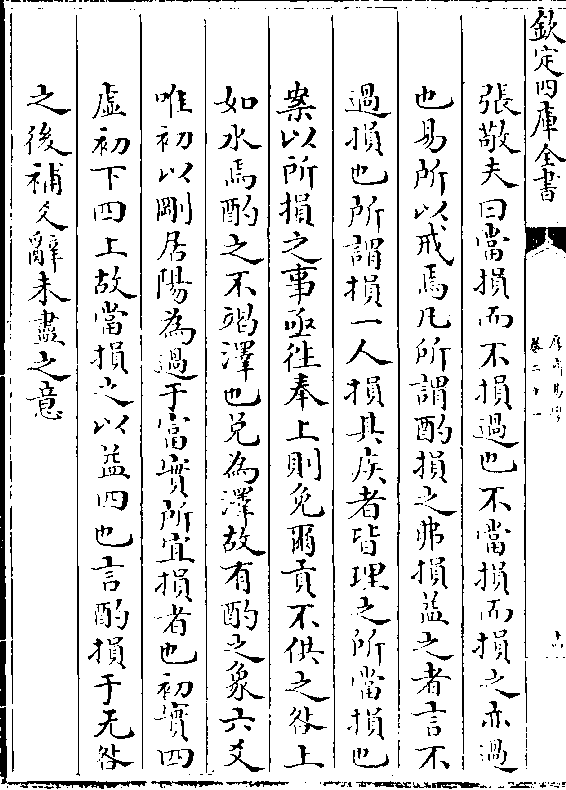 欽定四庫全書
卷二十一
張敬夫曰當損而不損過也不當損而損之亦過
也易所以戒焉凡所謂酌損之弗損益之者言不
過損也所謂損一人損其疾者皆理之所當損也
案以所損之事亟徃奉上則免爾貢不供之咎上
如水焉酌之不竭澤也兌為澤故有酌之象六爻
唯初以剛居陽為過于富實所宜損者也初實四
虛初下四上故當損之以益四也言酌損于无咎
之後補爻辭未盡之意